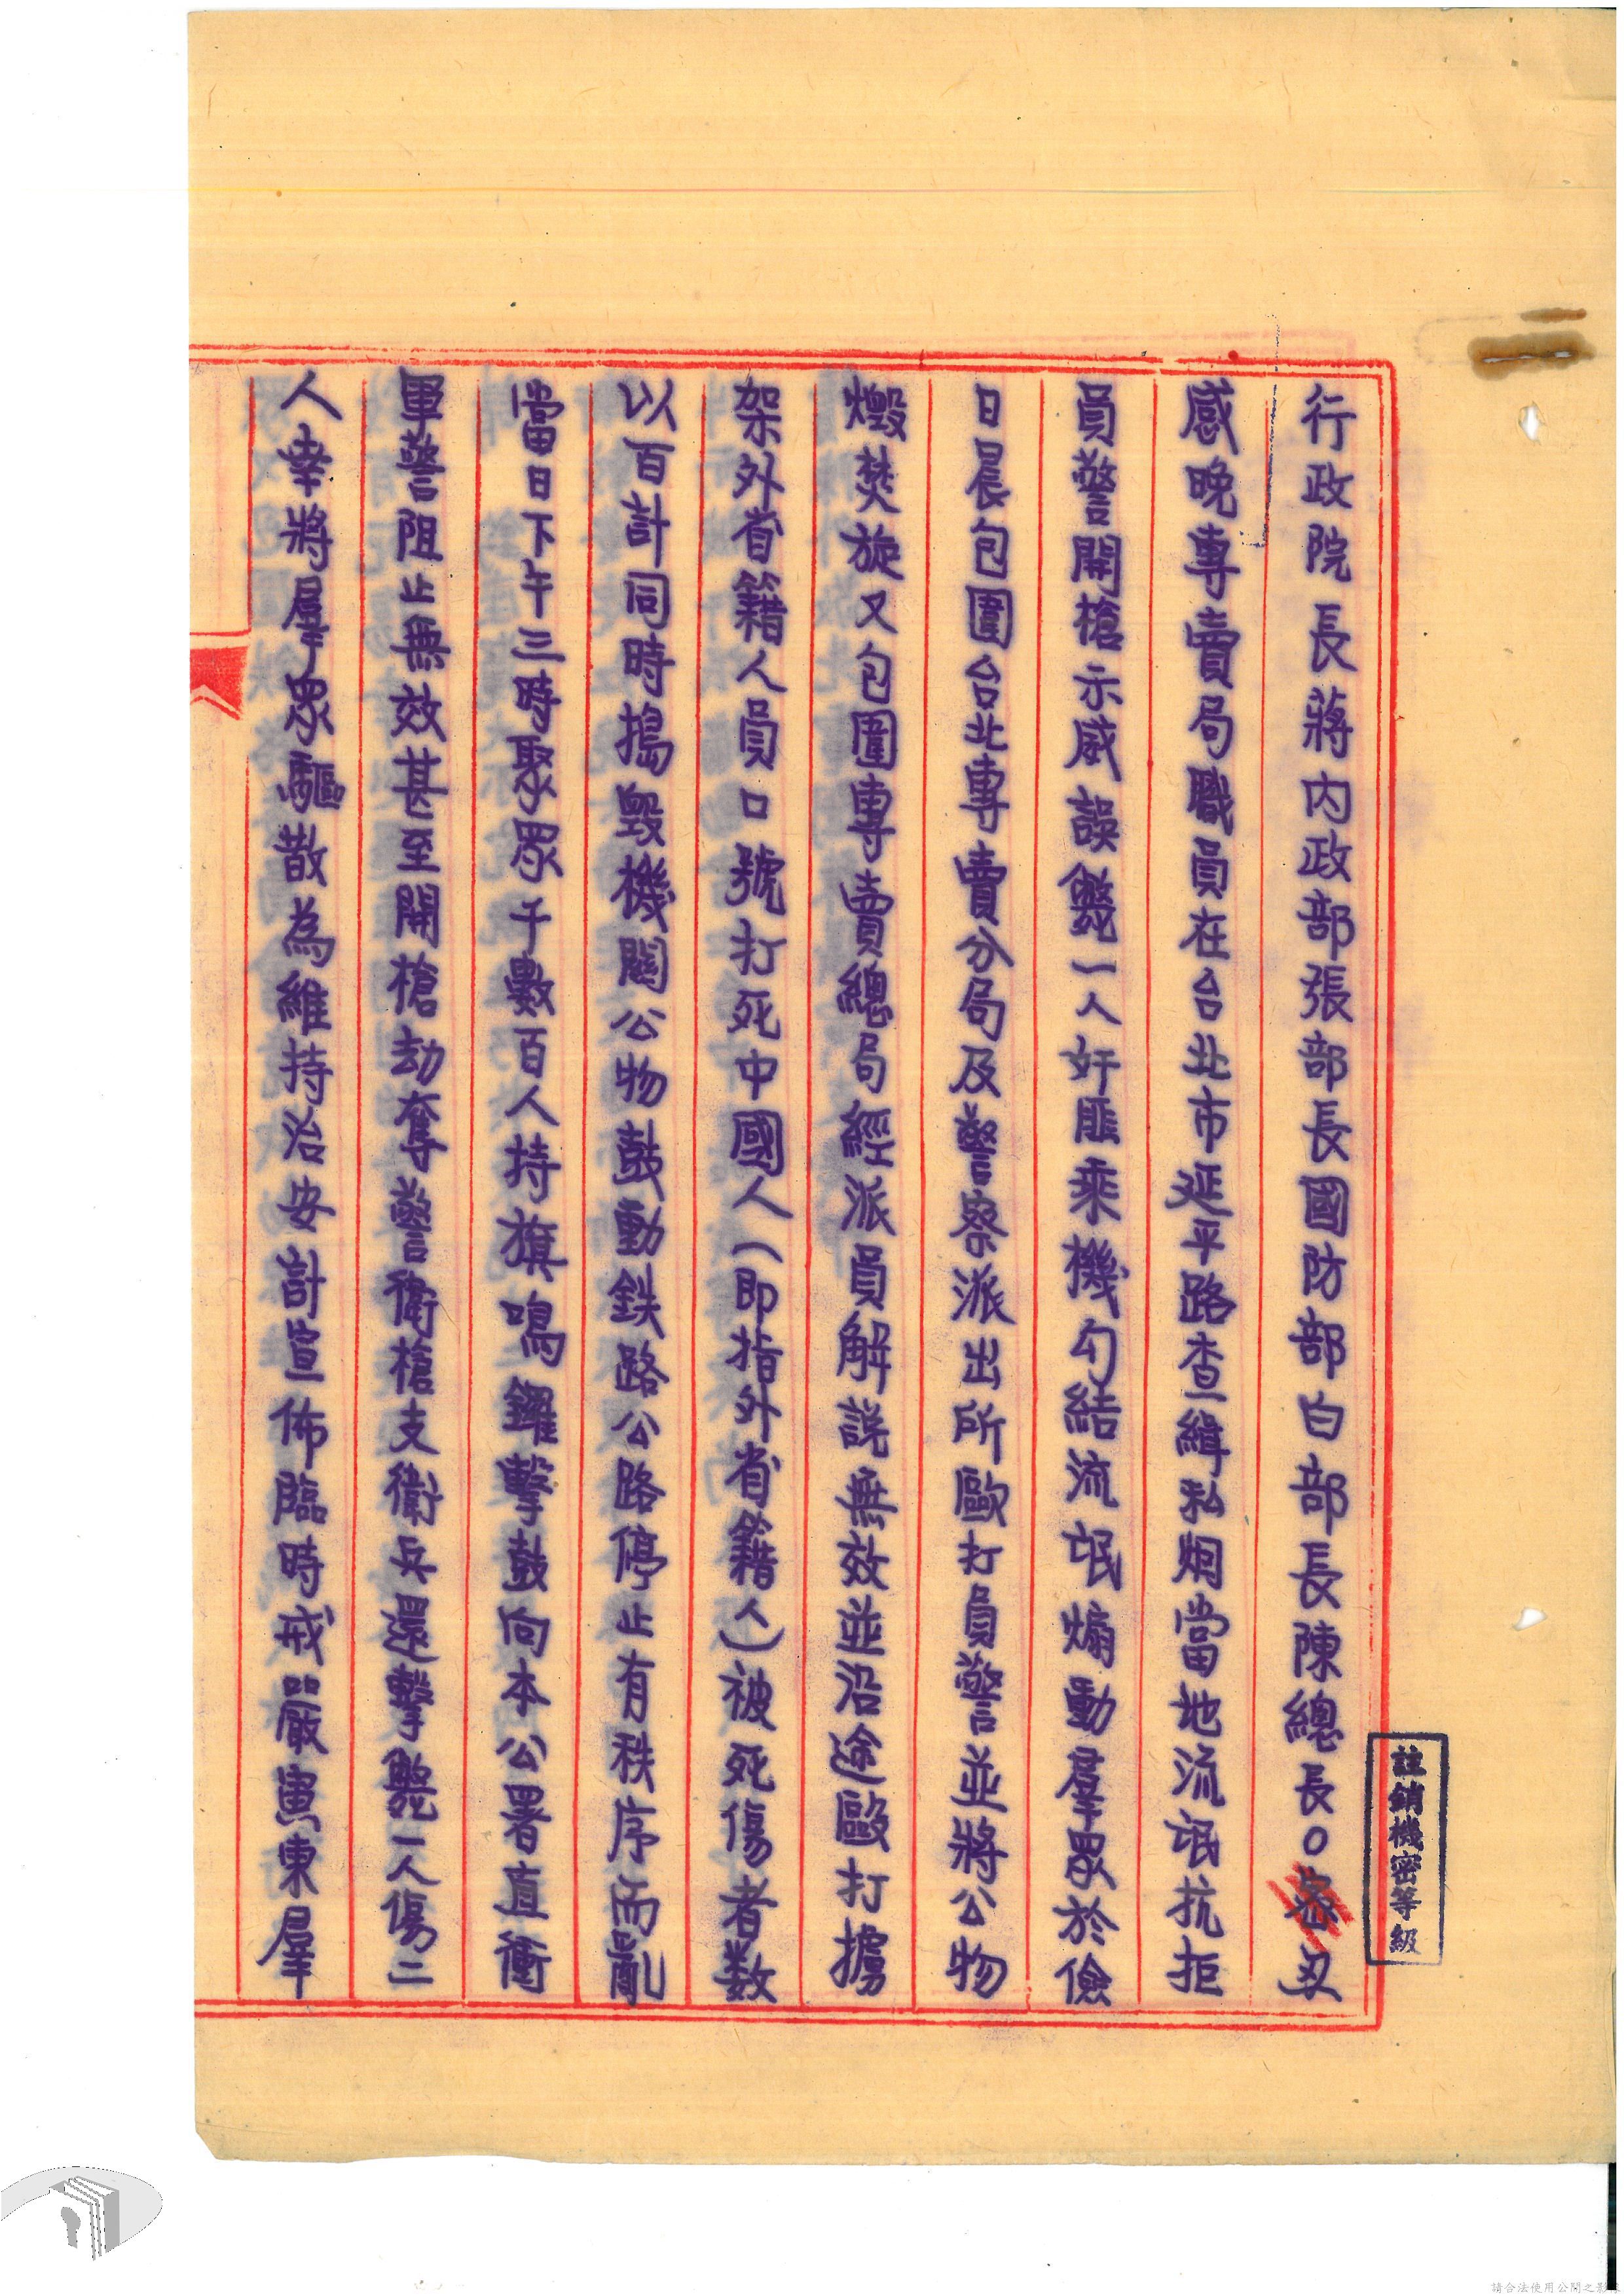 行政院長蔣內政部張部長國防部白部長陳總長○密丑
感晚專賣局職員在台北市延平路查緝私烟當地流氓抗拒
員警開槍示威誤斃一人奸匪乘機勾結流氓煽動羣眾於儉
日晨包圍台北專賣分局及警察派出所毆打員警並將公物
燬焚旋又包圍專賣總局經派員解説無效並沿途毆打擄
架外省籍人員口號打死中國人(即指外省籍人)被死傷者数
以百計同時搗毀機關公物鼓動鉄路公路停止有秩序而亂
當日下午三時聚眾千數百人持旗鳴鑼擊鼓向本公署直衝
軍警阻止無效甚至開槍劫奪警衛槍支衛兵還擊斃一人傷二
人幸將羣眾驅散為維持治安計宣佈臨時戒嚴寅東羣
註銷機密等級
請合法使用公開之影